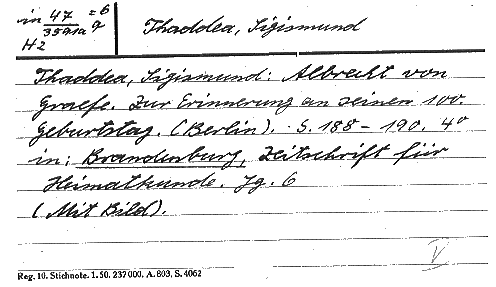 in 47 = 6
3591a 9
H2
Thaddea, Sigismund
Thaddea, Sigismund: Albrecht von
Graefe. Zur Erinnerung an seinen 100.
Geburtstag. (Berlin). S. 188-190. 4°
in: Brandenburg, Zeitschrift für
Heimatkunde. Jg. 6
(Mit Bild).
V
Reg. 10. Stichnote. 1. 50. 237000. A. 803. S. 4062